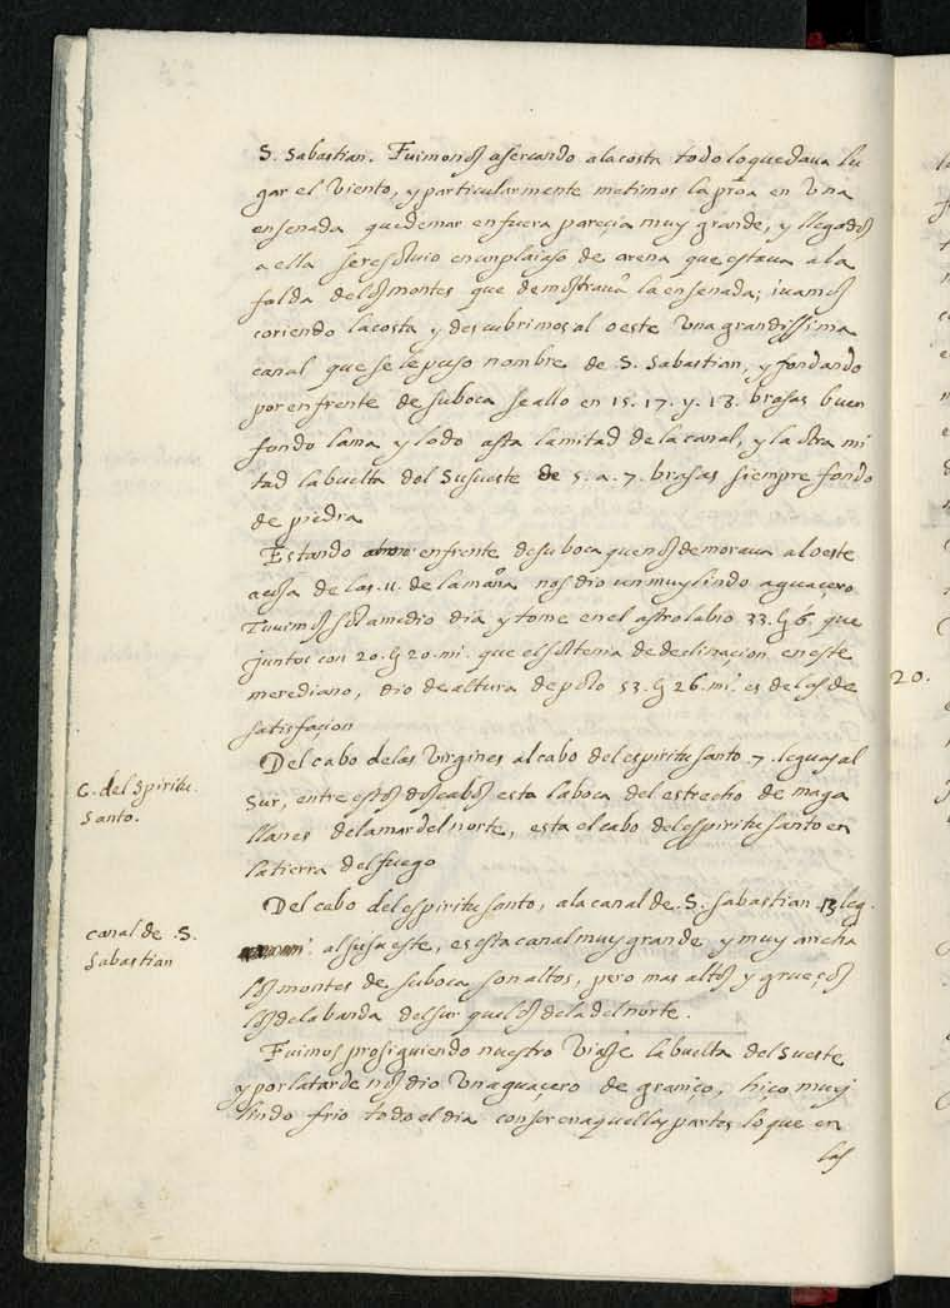 S. Sabastian. Fuimonos asercando alacosta todo loquedaua lu
gar el viento, y particularmente metimos la proa en vna
ensenada quedemar enfuera pareçia muy grande, y llegados
a ella seresoluio enunplaiaso de arena que estaua ala
falda delosmontes que demostrauã laensenada; iuamos
coriendo lacosta y descubrimos al oeste vna grandissima
canal que se le puso nombre de S. Sabastian, y fondando
por enfrente de suboca seallo en 15. 17. y. 18. brasas buen
fondo lama y lodo asta lamitad de la canal, y la otra mi
tad labuelta del Susueste de 5. a. 7. brasas siempre fondo
de piedra
Estando enfrente desu boca quenosdemoraua aloeste
acosa de las .11. de lamañna nos dio un muy lindo aguaçero
Tuuimos sol amedio dia y tome en el astrolabio 33. g 6. que
juntos con 20. g 20. mi. que elsoltenia de declinaçion eneste
merediano, dio de altura depolo 53. g 26. mi. es delasde
satisfaçion
Del cabo delas Virgines alcabo delespiritusanto 7. leguas al
Sur, entre estos doscabos esta laboca del estrecho de maga
llanes delamardelnorte, esta elcabo delespiritusanto en
latierra delfuego
Del cabo delespiritusanto, ala canal de .S. Sabastian 13 leg.
alsusueste, es esta canal muy grande y muy ancha
los montes de suboca son altos, pero mas altos y grueços
los delabanda delsur quelos dela delnorte.
Fuimos prosiguiendo nuestro viaje labuelta del sueste
y por latarde nos dio vnaguaçero de graniço, hiço muy
lindo frio todo el dia conser enaquellas partes lo que en
las
C. del Spiritu
Santo.
canal de .S.
Sabastian
20.